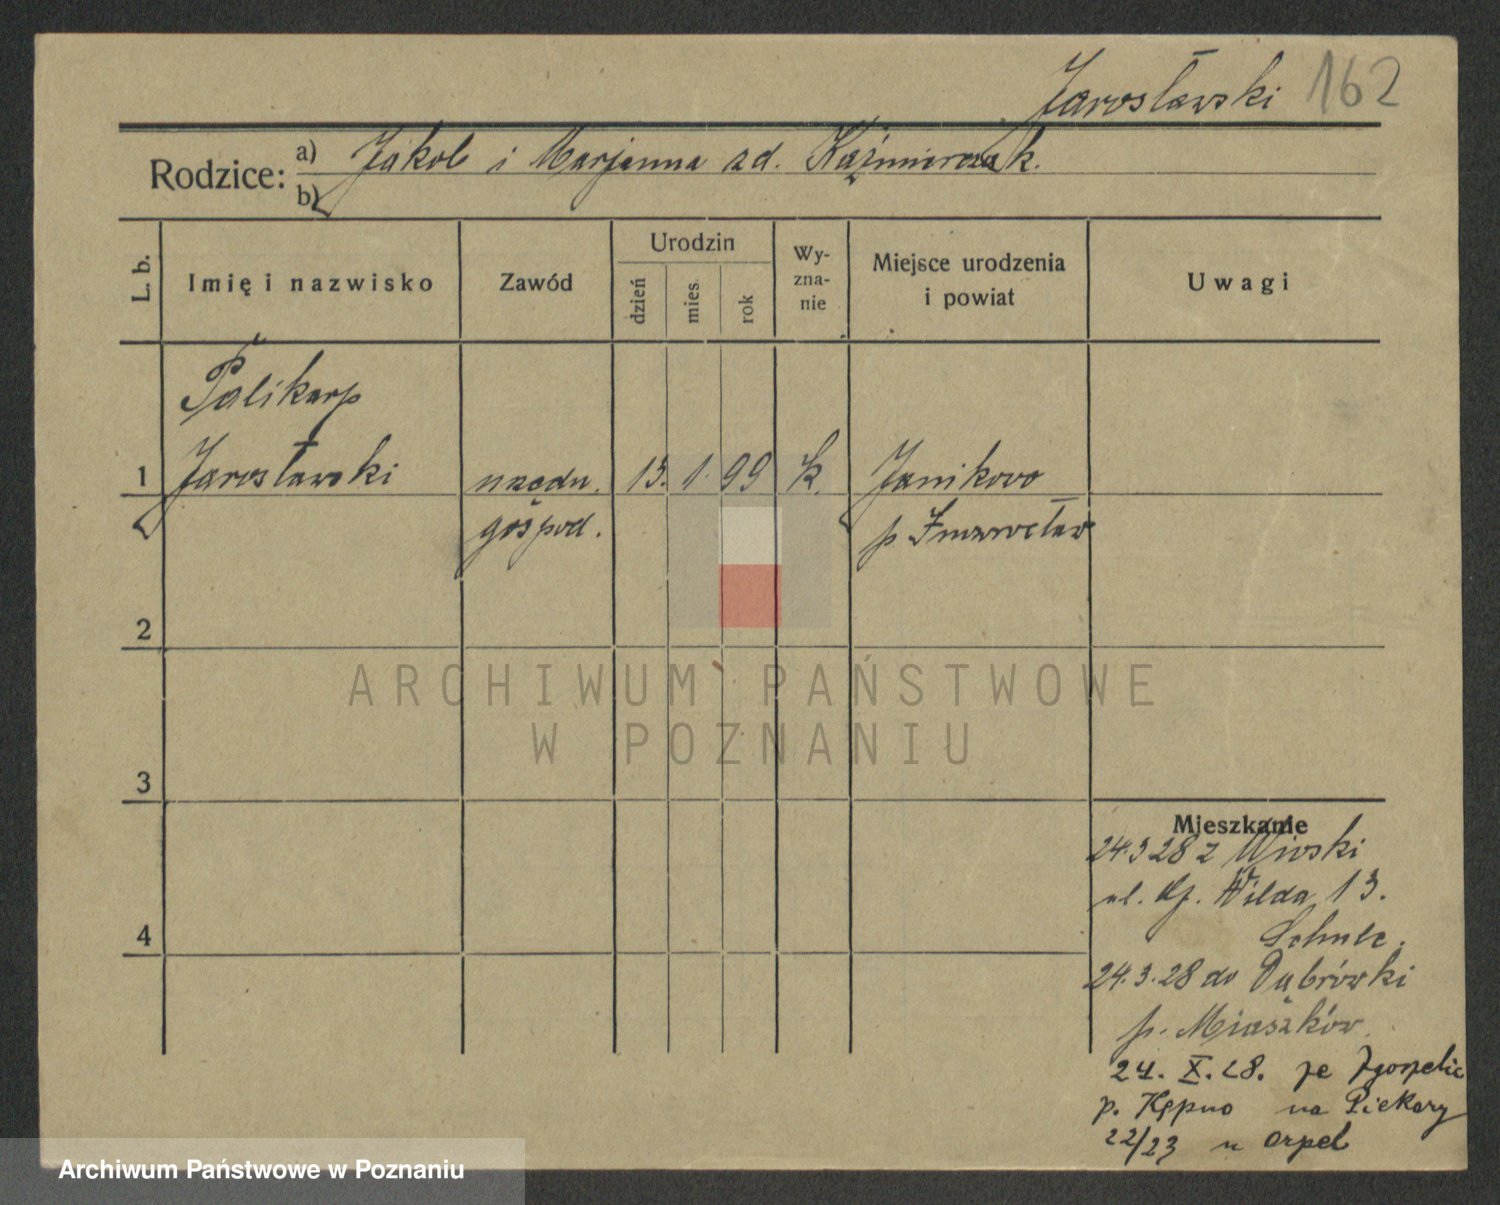 Jarosławski 162
Rodzice: a) Jakob i Marjanna zd. Kaźmierczak.
b)
L. b. Imię i nazwisko Zawód Urodzin dzień mies. rok Wy-zna-nie Miejsce urodzenia i powiat Uwagi
Polikarp
1 Jarosławski urzędn. 13. 1. 99 k. Janikowo
gospod. p. Inowrocław
2
ARCHIWUM PAŃSTWOWE
W POZNANIU
3
Mieszkanie
24.3 28 z
ul. Wilda 13.
4 Schulz.
24.3.28 do Dąbrówki
p.
24. X. 28. ze
p. Kępno na Piekary
22/23 u
Archiwum Państwowe w Poznaniu